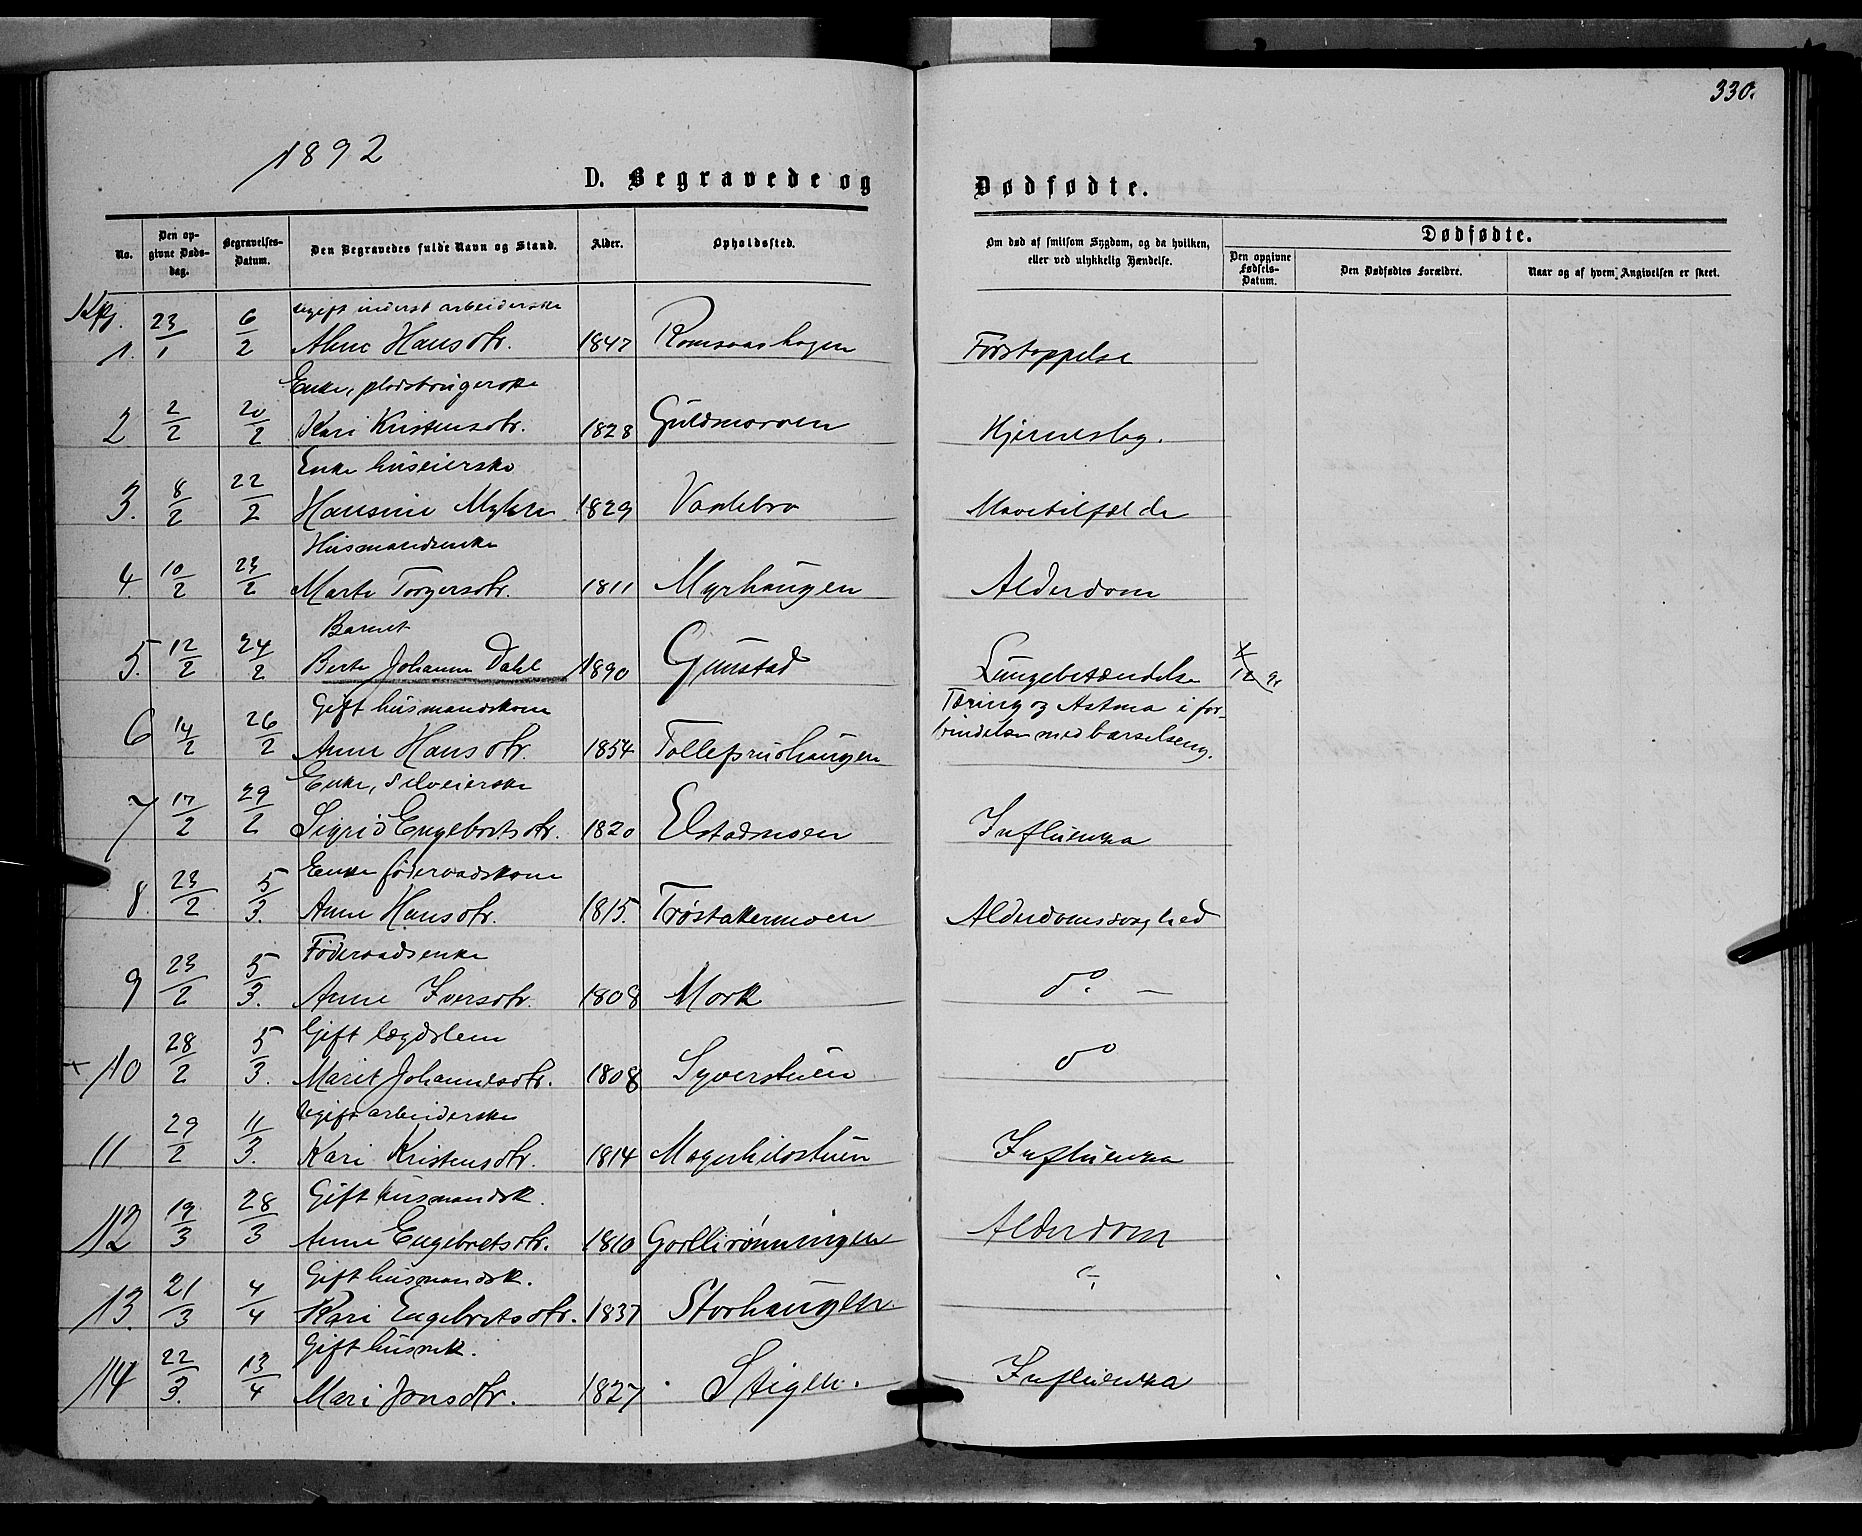 330.
1892
D. Begravede og
Dødfødte.
No.
Den op-
givne Døds-
dag.
Begravelses-
Datum.
Den Begravedes fulde Navn og Stand.
Alder.
Opholdssted.
Om død af smitsom Sygdom, og da hvilken,
eller ved ulykkelig Hændelse.
Dødfødte.
Den opgivne
Fødsels-
Datum.
Den Dødfødtes Forældre.
Naar og af hvem Angivelsen er skeet.
Kkj.
ugift inderst arbeiderske
1. 23/1 6/2 Hansdtr. 1847 Romsaashagen Forstoppelse
Enke, pladsbrugerske
2 2/2 20/2 Kari Kristensdtr. 1828 Guldmoroen Hjerneslag.
Enke huseierske
3. 8/2 22/2 Hansine Myhre 1829 Vaalebro Mavetilfælde
Husmandsenke
4. 10/2 23/2 Marte Torgersdtr. 1811 Myrhaugen Alderdom
Barnet
5. 12/2 24/2 Berte Johanne Dahl 1890 Gunstad Lungebetændelse
Gift husmandskone
Tæring og Astma i for-
6 14/2 26/2 Anne Hansdtr. 1854 Tollefsrudhaugen bindelse med barselseng.
Enke, selveierske
7 17/2 29/2 Sigrid Engebretsdtr. 1820 Elstadmoen Influenza
Enke føderaadskone
8. 23/2 5/3. Anne Hansdtr. 1815. Trøstakermoen Alderdomssvaghed
Føderaadsenke
9 23/2 5/3. Anne Iversdtr. 1808 Mork do. —
Gift lægdslem
10 28/2 5/3. Marit Johannesdtr. 1808 Syverstuen do
Ugift arbeiderske
11 29/2 11/3. Kari Kristensdtr. 1814 Magnhildstuen Influenza
Gift husmandsk.
12 19/3 28/3 Anne Engebretsdtr. 1810 Gaallirønningen Alderdom
Gift husmandsk.
13. 21/3 4/4 Kari Engebretsdtr. 1837 Storhaugen
Gift husmk.
14 22/3. 13/4 Mari Jonsdtr. 1827 Stigen. Influenza